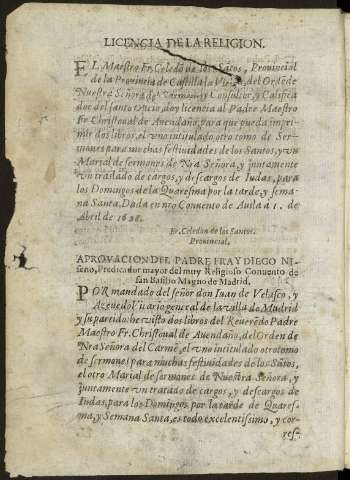 LICENCIA DE LA RELIGION.
EL Maestro Fr. Celedõ de los Sãtos, Prouincial
de la Prouincia de Castilla la Vieja, del Ordẽ de
Nuestra Señora del Carmen, Consultor, y Califica
dor del santo Oficio, doy licencia al Padre Maestro
Fr. Christoual de Auendaño, para que pueda impri-
mir dos libros, el vno intitulado otro tomo de Ser-
mones para muchas festiuidades de los Santos, y vn
Marial de sermones de Nra Señora, y juntamente
vn traslado de cargos, y descargos de Iudas, para
los Domingos de la Quaresma por la tarde, y sema
na Santa. Dada en nro Conuento de Auila a 1. de
Abril de 1628.
Fr. Celedon de los Santos.
Prouincial.
APROVACION DEL PADRE FRAY DIEGO NI-
seno, Predicador mayor del muy Religioso Conuento de
san Basilio Magno de Madrid.
POR mandado del señor don Iuan de Velasco, y
Azeuedo Vicario general de la villa de Madrid
y su partido: he visto dos libros del Reuerẽdo Padre
Maestro Fr. Christoual de Auendaño, del Orden de
Nra Señora del Carmẽ, el vno intitulado otro tomo
de sermones para muchas festiuidades de los Sãtos,
el otro Marial de sermones de Nuestra Señora, y
juntamente vn tratado de cargos, y descargos de
Iudas, para los Domingos por la tarde de Quares-
ma, y Semana Santa, es todo excelentissimo, y cor-
res-